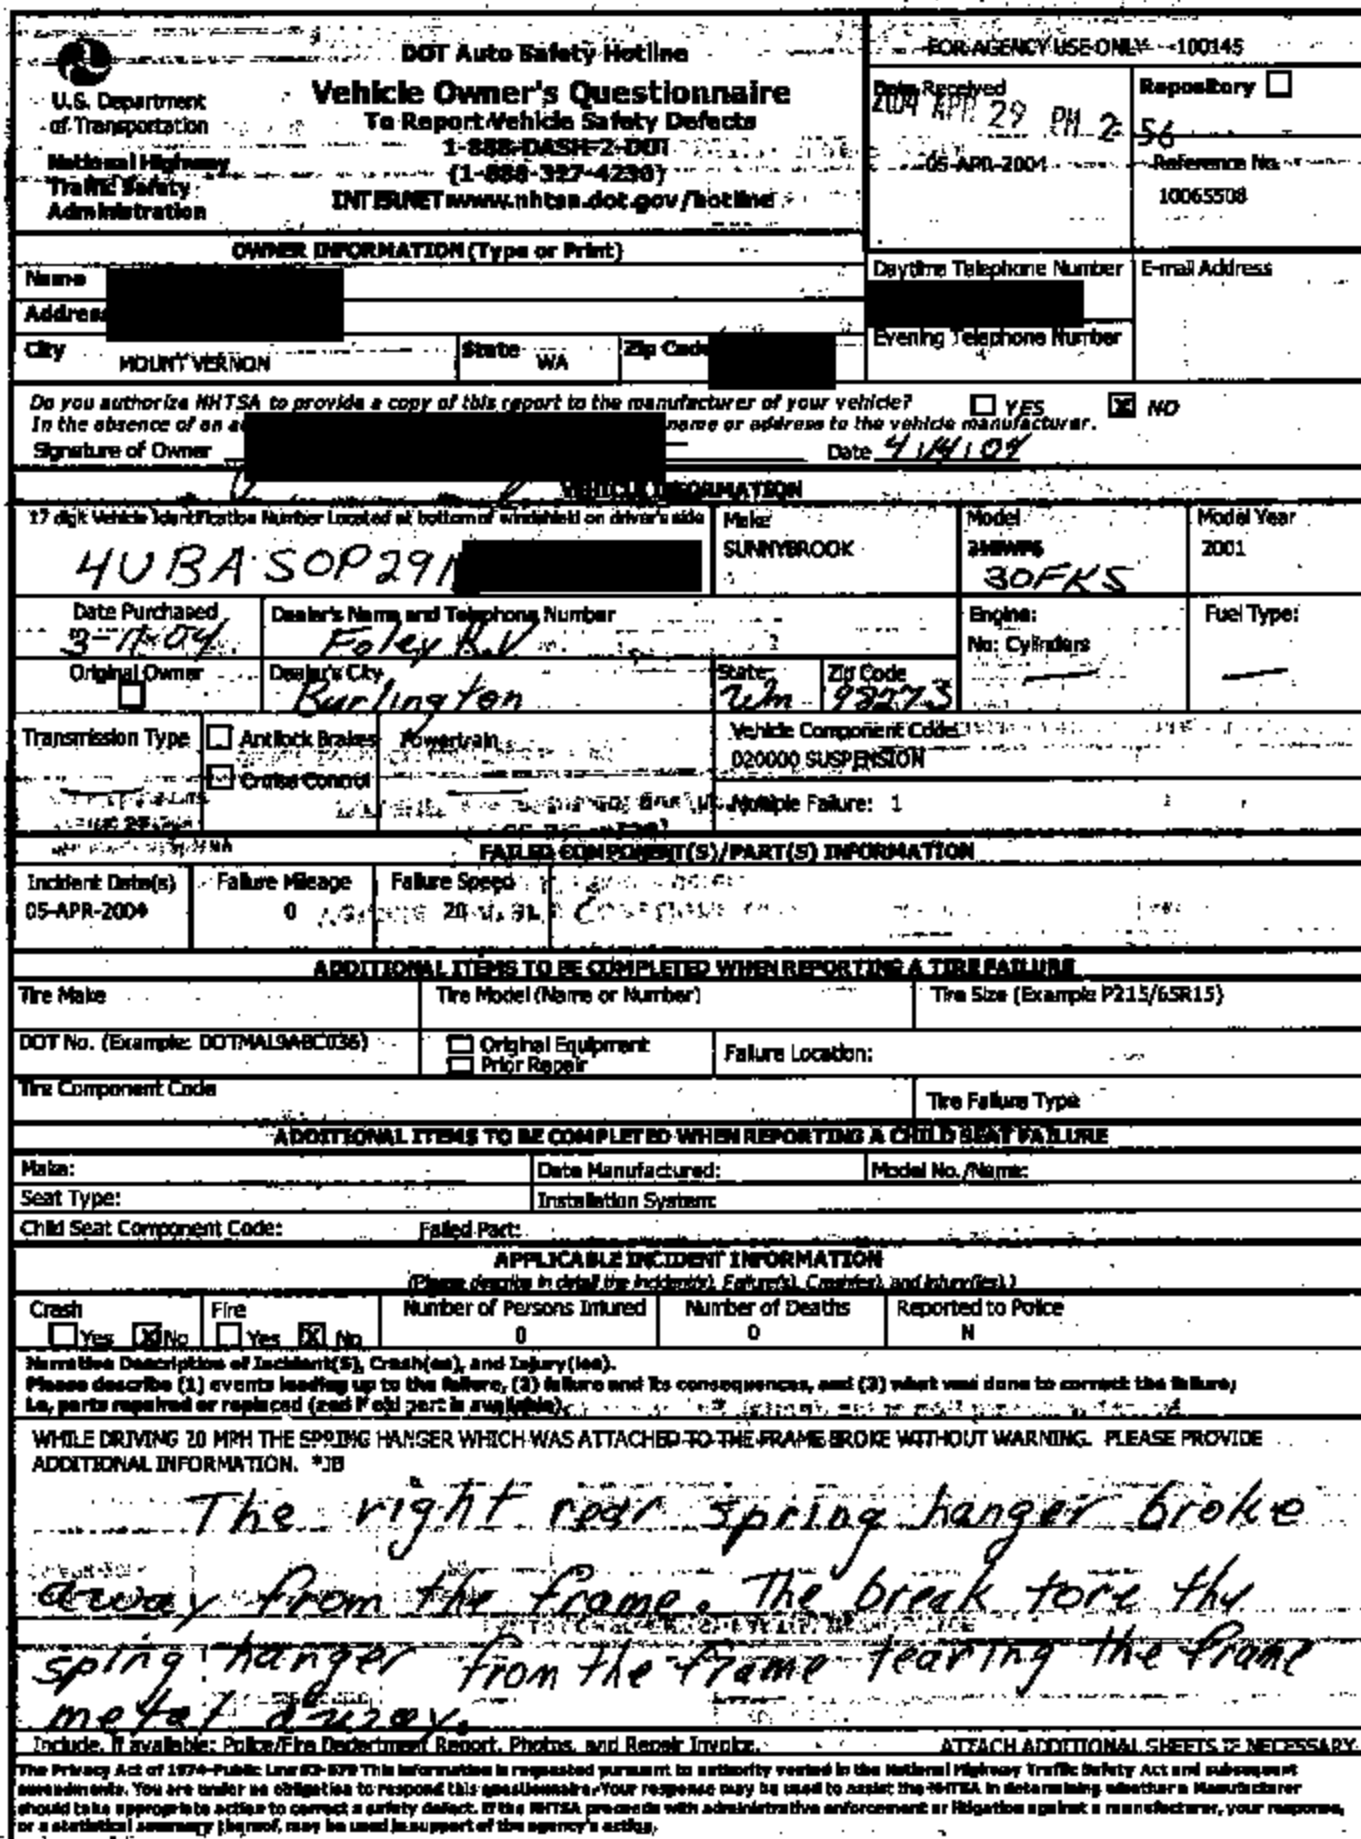 DOT Auto Safety Hotline
Vehicle Owner's Questionnaire
To Report Vehicle Safety Defects
1-888-DASH-2-DOT
(1-888-327-4236)
INTERNET: www.nhtsa.dot.gov/hotline
U.S. Department
of Transportation
National Highway
Traffic Safety
Administration
FOR AGENCY USE ONLY 100145
Date Received
2004 APR 29 PM 2:56
05-APR-2004
Repository
Reference No.
10065508
OWNER INFORMATION (Type or Print)
Name
Address
City MOUNT VERNON State WA Zip Code
Daytime Telephone Number E-mail Address
Evening Telephone Number
Do you authorize NHTSA to provide a copy of this report to the manufacturer of your vehicle? YES X NO
In the absence of an name or address to the vehicle manufacturer.
Signature of Owner Date 4/14/04
VEHICLE INFORMATION
17 digit Vehicle Identification Number Located at bottom of windshield on driver's side
4UBA SOP291
Make
SUNNYBROOK
Model
30FKS
Model Year
2001
Date Purchased
Dealer's Name and Telephone Number
Foley R.V
Engine:
No: Cylinders
Fuel Type:
Original Owner
Dealer's City
Burlington
State
Zip Code
Transmission Type
Antilock Brakes
Cruise Control
Powertrain
Vehicle Component Code
020000 SUSPENSION
Multiple Failure: 1
FAILED COMPONENT(S)/PART(S) INFORMATION
Incident Date(s) Failure Mileage Failure Speed
05-APR-2004 0 20
ADDITIONAL ITEMS TO BE COMPLETED WHEN REPORTING A TIRE FAILURE
Tire Make Tire Model (Name or Number) Tire Size (Example P215/65R15)
DOT No. (Example: DOTMAL9ABC036)
Original Equipment
Prior Repair
Failure Location:
Tire Component Code Tire Failure Type
ADDITIONAL ITEMS TO BE COMPLETED WHEN REPORTING A CHILD SEAT FAILURE
Make: Date Manufactured: Model No./Name:
Seat Type: Installation System:
Child Seat Component Code: Failed Part:
APPLICABLE INCIDENT INFORMATION
(Please describe in detail the incident(s), Failure(s), Crash(es), and injury(ies).)
Crash Fire Number of Persons Injured Number of Deaths Reported to Police
Yes X No Yes X No 0 0 N
Narrative Description of Incident(s), Crash(es), and Injury(ies).
Please describe (1) events leading up to the failure, (2) failure and its consequences, and (3) what was done to correct the failure;
i.e, parts repaired or replaced (and if old part is available).
WHILE DRIVING 20 MPH THE SPRING HANGER WHICH WAS ATTACHED TO THE FRAME BROKE WITHOUT WARNING. PLEASE PROVIDE
ADDITIONAL INFORMATION. *JB
The right rear spring hanger broke
away from the frame. The break tore thy
sping hanger from the frame tearing the frame
metal away.
Include, if available: Police/Fire Department Report, Photos, and Repair Invoice. ATTACH ADDITIONAL SHEETS IF NECESSARY
The Privacy Act of 1974-Public Law 93-579 This information is requested pursuant to authority vested in the National Highway Traffic Safety Act and subsequent
amendments. You are under no obligation to respond this questionnaire. Your response may be used to assist the NHTSA in determining whether a Manufacturer
should take appropriate action to correct a safety defect. If the NHTSA proceeds with administrative enforcement or litigation against a manufacturer, your response,
or a statistical summary thereof, may be used in support of the agency's action.